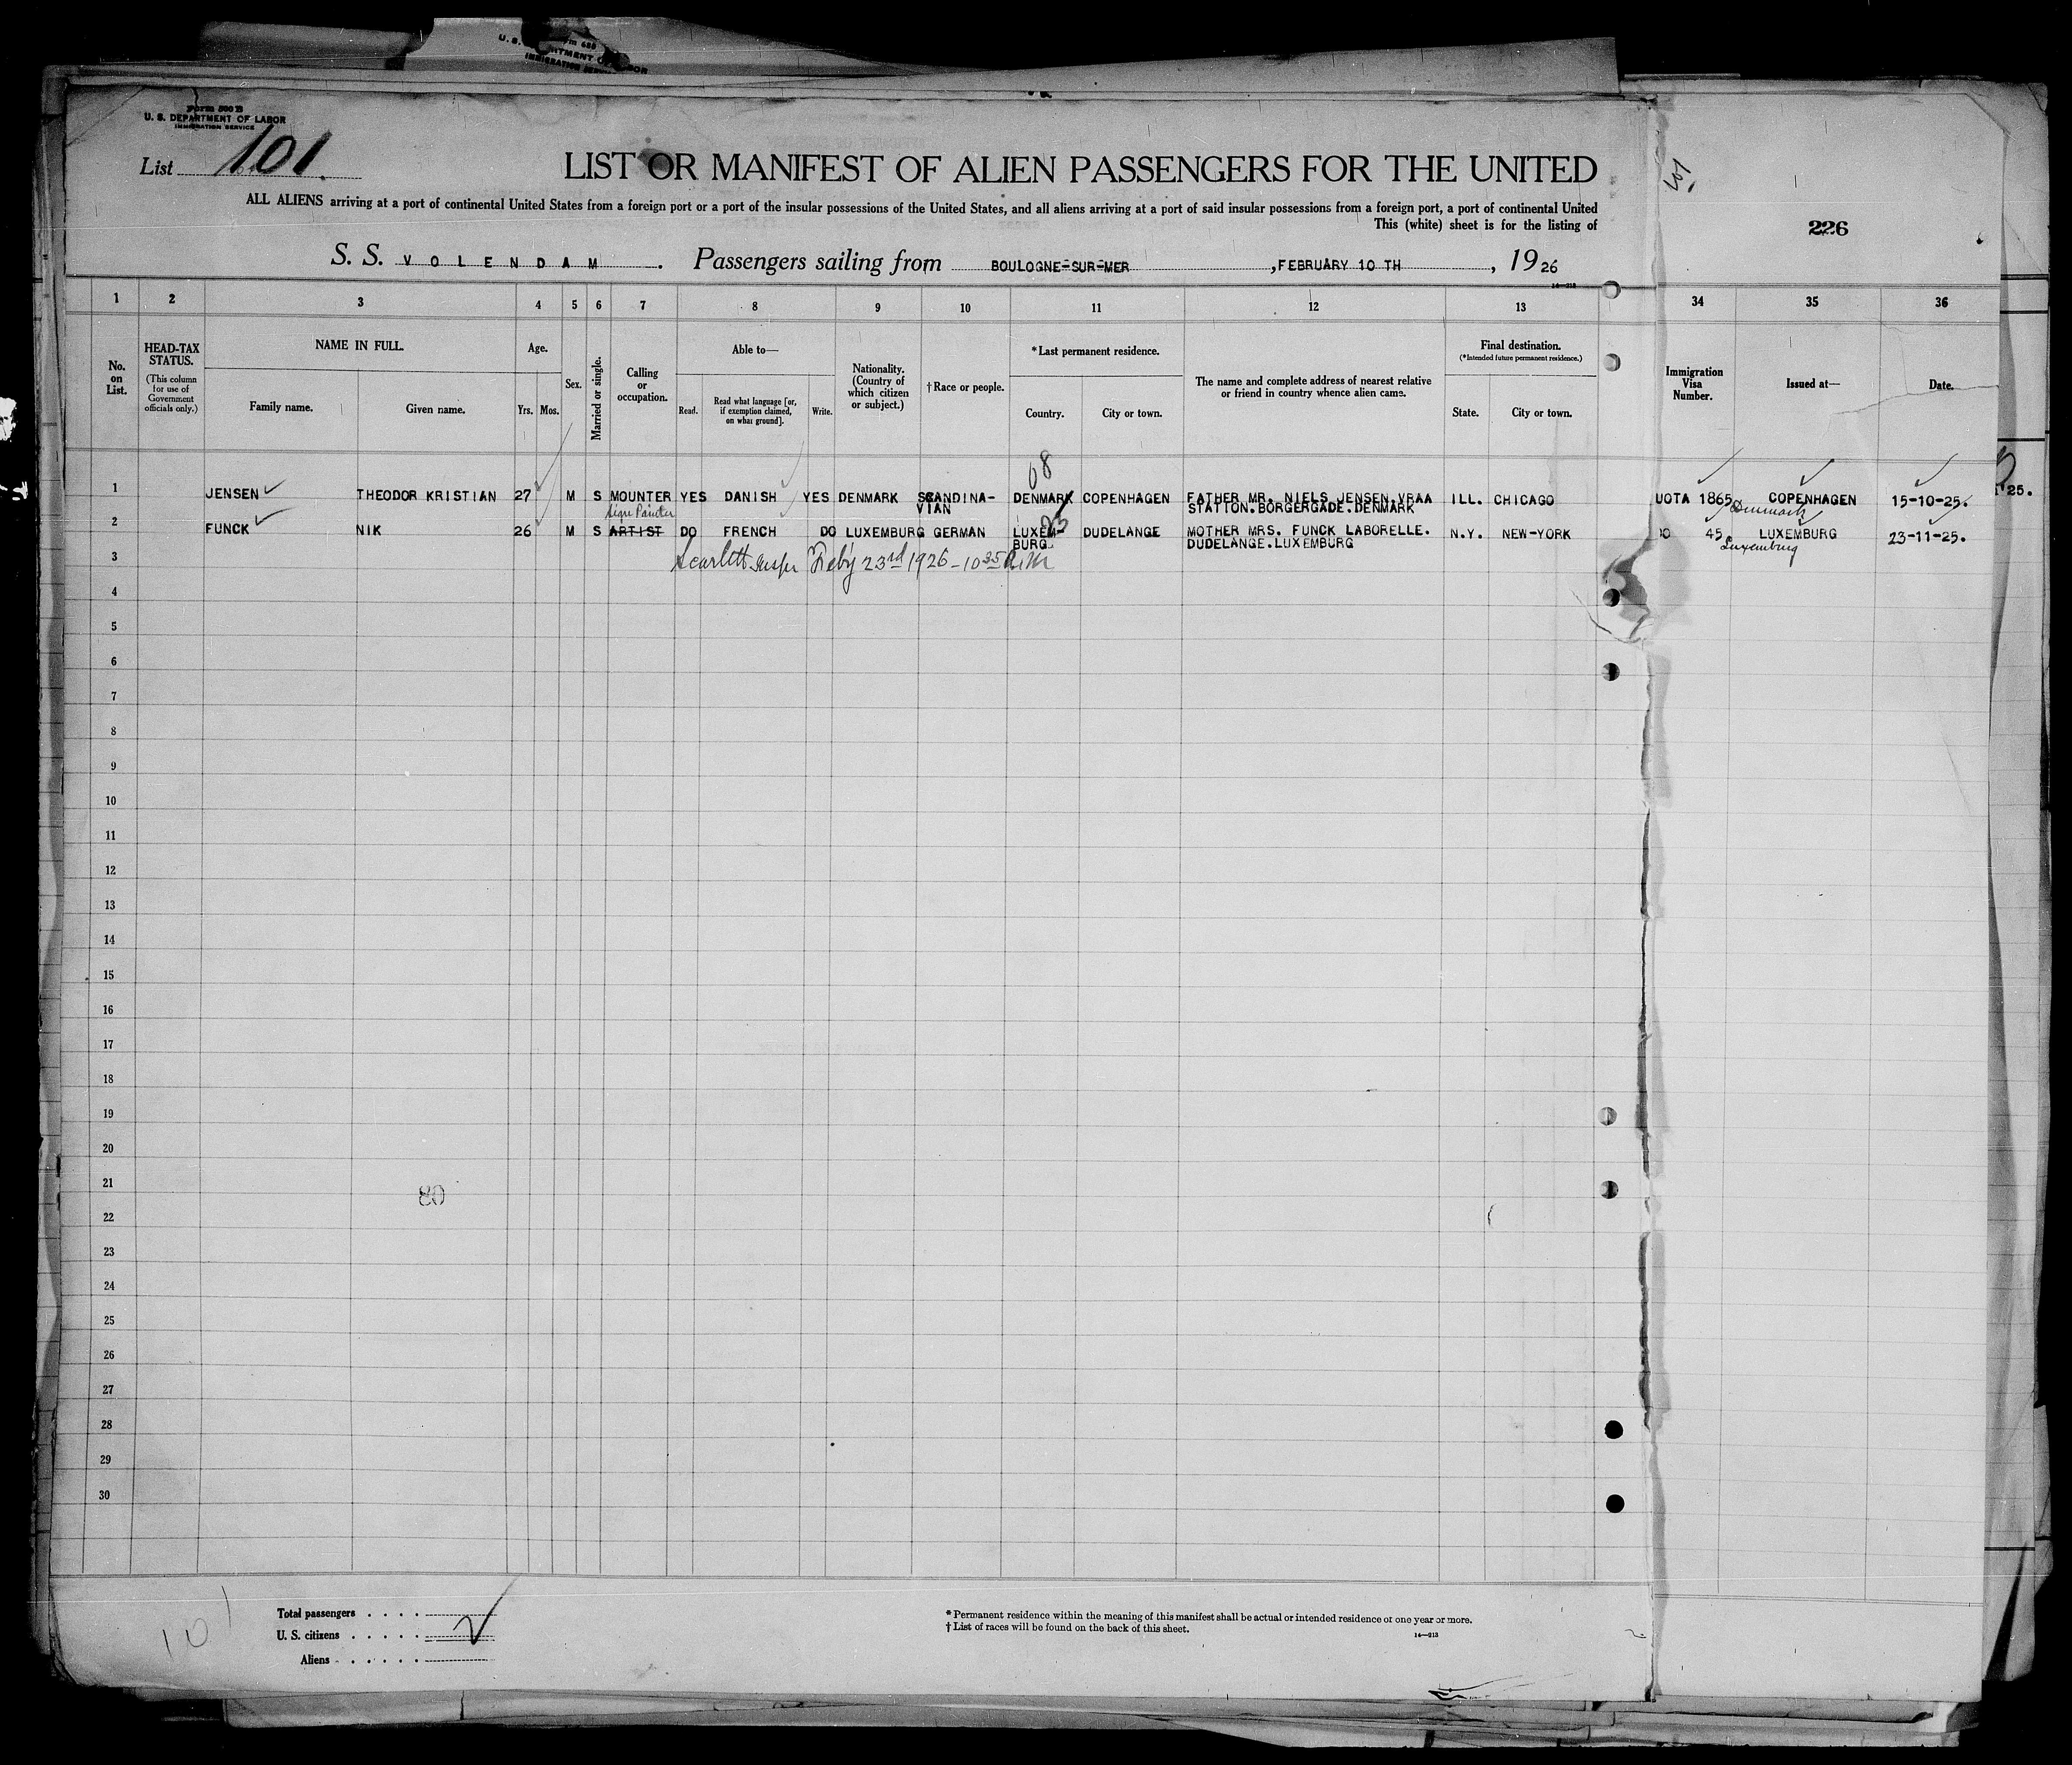 U. S. DEPARTMENT OF LABOR
IMMIGRATION SERVICE
Form 500 B
U. S. DEPARTMENT OF LABOR
IMMIGRATION SERVICE
List 101.
LIST OR MANIFEST OF ALIEN PASSENGERS FOR THE UNITED
101
ALL ALIENS arriving at a port of continental United States from a foreign port or a port of the insular possessions of the United States, and all aliens arriving at a port of said insular possessions from a foreign port, a port of continental United
This (white) sheet is for the listing of
226
S. S. VOLENDAM. Passengers sailing from BOULOGNE-SUR-MER, FEBRUARY 10 TH, 1926
1 2 3 4 5 6 7 8 9 10 11 12 13 34 35 36
No. on List.
HEAD-TAX STATUS.
(This column for use of Government officials only.)
NAME IN FULL.
Family name. Given name.
Age.
Yrs. Mos.
Sex.
Married or single.
Calling or occupation.
Able to—
Read. Read what language [or, if exemption claimed, on what ground]. Write.
Nationality. (Country of which citizen or subject.)
†Race or people.
*Last permanent residence.
Country. City or town.
The name and complete address of nearest relative or friend in country whence alien came.
Final destination.
(*Intended future permanent residence.)
State. City or town.
Immigration Visa Number.
Issued at—
Date.
08
1 JENSEN THEODOR KRISTIAN 27 M S MOUNTER YES DANISH YES DENMARK SCANDINA- DENMARK COPENHAGEN FATHER MR. NIELS JENSEN.VRAA ILL. CHICAGO UOTA 1865 COPENHAGEN 15-10-25.
VIAN STATION.BORGERGADE.DENMARK Denmark
Sign Painter 23
2 FUNCK NIK 26 M S ARTIST DO FRENCH DO LUXEMBURG GERMAN LUXEM- DUDELANGE MOTHER MRS. FUNCK LABORELLE. N.Y. NEW-YORK DO 45 LUXEMBURG 23-11-25.
BURG. DUDELANGE.LUXEMBURG Luxemburg
Scarlett Inspr Feby 23rd 1926 - 10 35 A.M
3
4
5
6
7
8
9
10
11
12
13
14
15
16
17
18
19
20
21
80
22
23
24
25
26
27
28
29
30
101
Total passengers
U. S. citizens 2
Aliens
* Permanent residence within the meaning of this manifest shall be actual or intended residence of one year or more.
† List of races will be found on the back of this sheet.
14—213